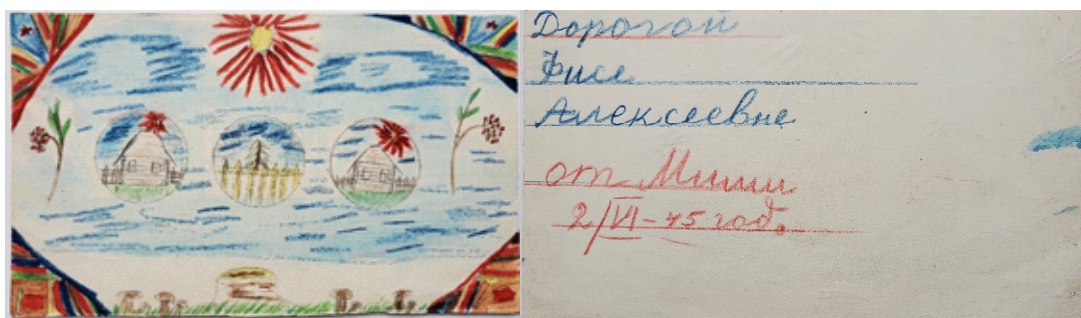 Дорогой
Фисе
Алексеевне
от Миши
2/VI-45 год.